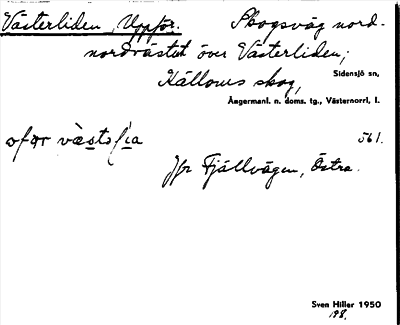 Västerliden, Uppför. Skogsväg nord-
nordvästut över Västerliden;
Källoms skog,
Sidensjö sn,
Ångermanl. n. doms. tg., Västernorrl, l.
561.
Jfr Fjällvägen, Östra.
Sven Hiller 1950
198.